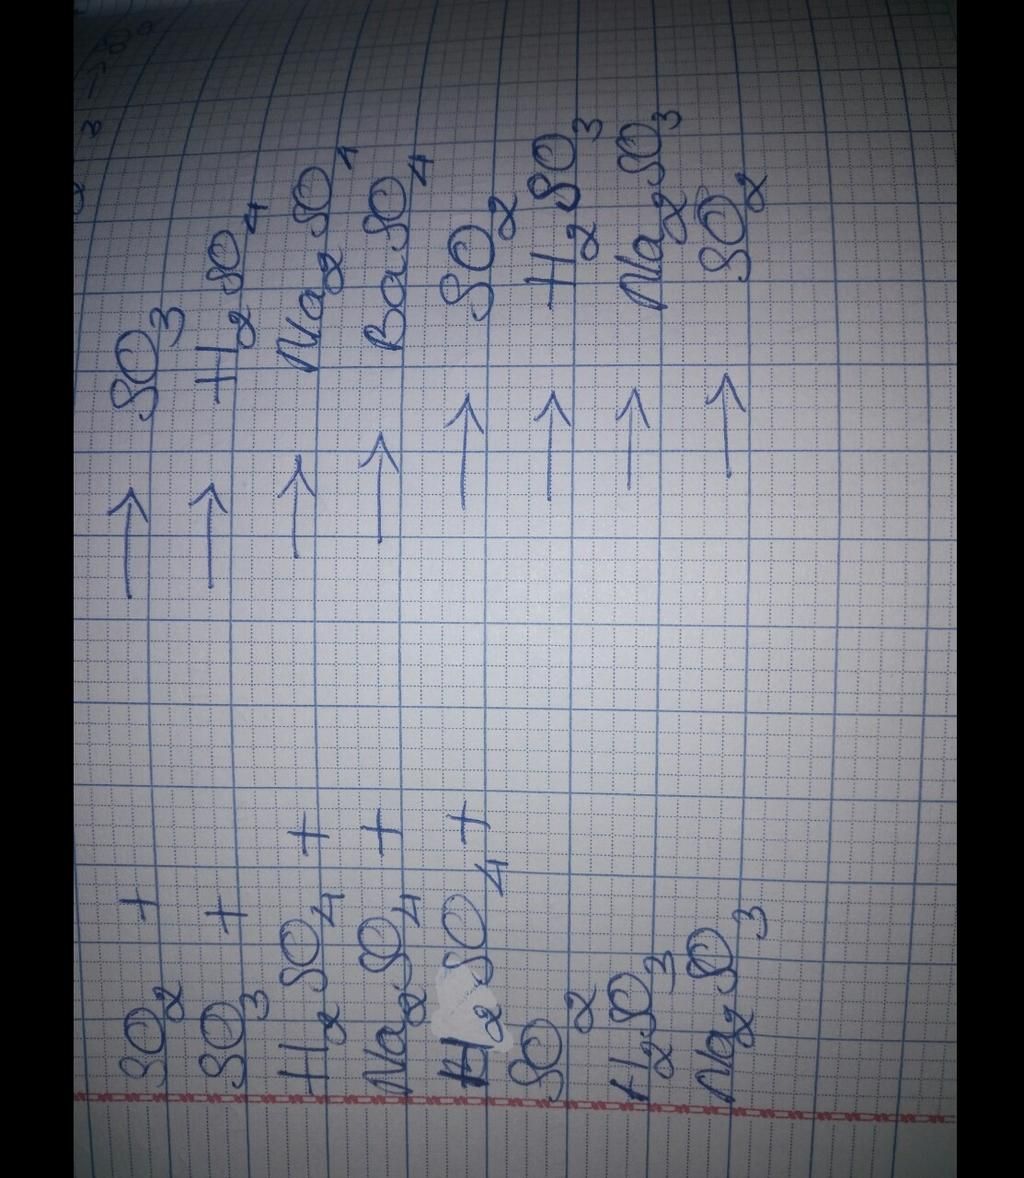 SO₂ + → SO₃
SO₃ + → H₂SO₄
H₂SO₄ + → Na₂SO₄
Na₂SO₄ + → BaSO₄
H₂SO₄ + → SO₂
SO₂ → H₂SO₃
H₂SO₃ → Na₂SO₃
Na₂SO₃ → SO₂